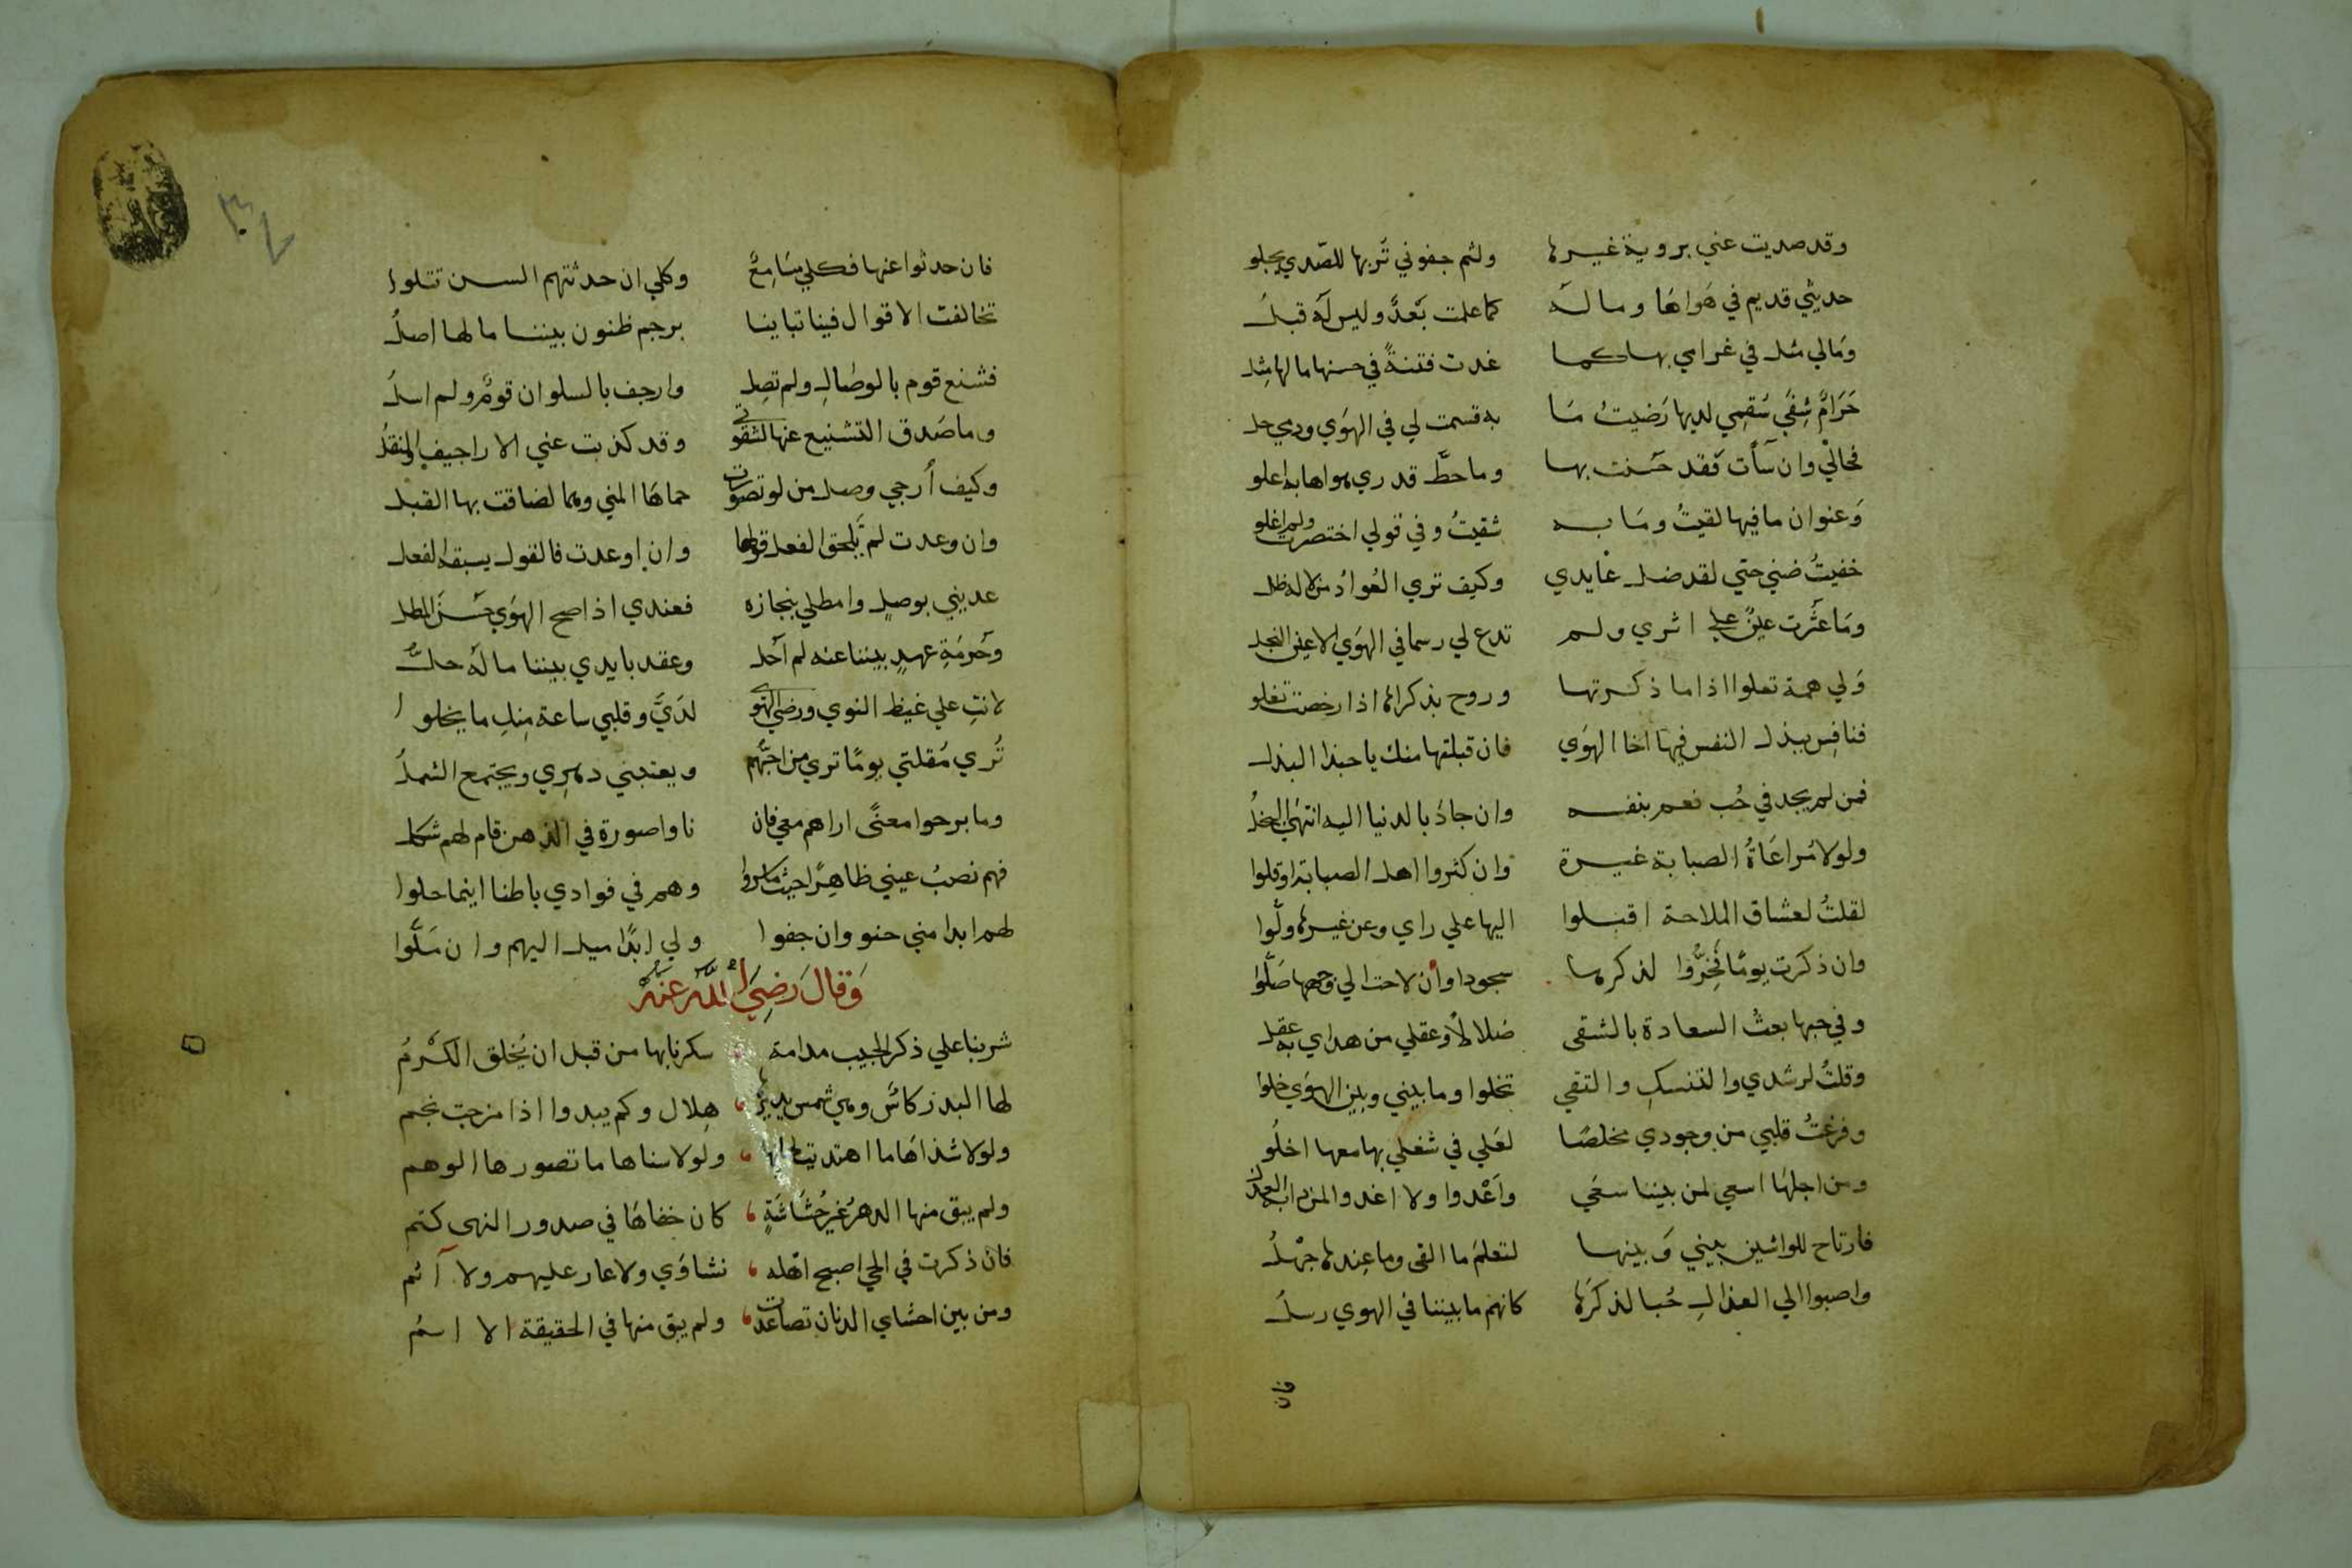 وقد صديت عني بروية غيرها ولثم جفوني تربها للصدي يجلو
حديثي قديم في هواها وماله كما علمت بعد وليس له قبل
ومالي مثل في غرامي بها كما غدت فتنة في حسنها مالها مثل
حرام شفي سقمي لديها رضيت ما به قسمت لي في الهوي ودمي حل
فحالي وان سأت فقد حسنت بها وما حط قدري هواها به اعلو
وعنوان ما فيها لقيت وما به شقيت وفي قولي اختصرت ولم اغلو
خفيت ضني حتي لقد ضل عايدي وكيف تري العواد من لا له ظل
وما عثرت عين علي اثري ولم تدع لي رسما في الهوي الاعين النجل
ولي همة تعلوا اذا ما ذكرتها وروح بذكراها اذا رخصت تغلو
فنافس ببذل النفس فيها اخا الهوي فان قبلتها منك يا حبذا البذل
فمن لم يجد في حب نعم بنفسه وان جاد بالدنيا اليه انتهي البخل
ولولا مراعاة الصبابة غيرة وان كثروا اهل الصبابة او قلوا
لقلت لعشاق الملاحة اقبلوا اليها علي راي وعن غيرها ولوا
وان ذكرت يوما فخروا لذكرها سجودا وأن لاحت الي وجهها صلوا
وفي حبها بعت السعادة بالشقى ضلالا وعقلي من هداي به عقل
وقلت لرشدي والتنسك والتقي تخلوا وما بيني وبين الهوي خلوا
وفرغت قلبي من وجودي مخلصا لعلي في شغلي بها معها اخلو
ومن اجلها اسعي لمن بيننا سعي واغدوا ولا اغدو المن دابه العذل
فارتاح للواشين بيني وبينها لتعلم ما القى وما عندها جهل
واصبوا الي العذال حبا لذكرها كانهم ما بيننا في الهوي رسل
فان
فان حدثوا عنها فكلي سامع وكلي ان حدثتهم السن تتلوا
تخالفت الاقوال فينا تباينا برجم ظنون بيننا مالها اصل
فشنع قوم بالوصال ولم تصل وارجف بالسلوان قوم ولم اسل
وما صدق التشنيع عنها لشقوتي وقد كذبت عني الاراجيف والنقل
وكيف أرجي وصل من لو تصورت حماها المني وهما لضاقت بها القبل
وان وعدت لم يلحق الفعل قولها وان اوعدت فالقول يسبقه الفعل
عديني بوصل وامطلي بنجازه فعندي اذا صح الهوي حسن المطل
وحرمة عهد بيننا عنه لم أحل وعقد بايدي بيننا ماله حل
لانت علي غيظ النوي ورضي الهوي لدي وقلبي ساعة منك ما يخلو ا
تري مقلتي يوما تري من احبهم ويعتبني دهري ويجتمع الشمل
وما برحوا معنى اراهم معي فان ناوا صورة في الذهن قام لهم شكل
فهم نصب عيني ظاهرا حيث ما سروا وهم في فوادي باطنا اينما حلوا
لهم ابدا مني حنو وان جفوا ولي ابدا ميل اليهم وان ملوا
وقال رضي الله عنه
شربنا علي ذكر الحبيب مدامة سكرنا بها من قبل ان يخلق الكرم
لها البدر كاس وهي شمس يديرها هلال وكم يبدوا اذا مزجت نجم
ولولا شذاها ما اهتديت لحانها ولولا سناها ما تصورها الوهم
ولم يبق منها الدهر غير حشاشة كان خفاها في صدور النهى كتم
فان ذكرت في الحي اصبح اهله نشاوي ولا عار عليهم ولا أثم
ومن بين احشاي الدنان تصاعدت ولم يبق منها في الحقيقة الا اسم